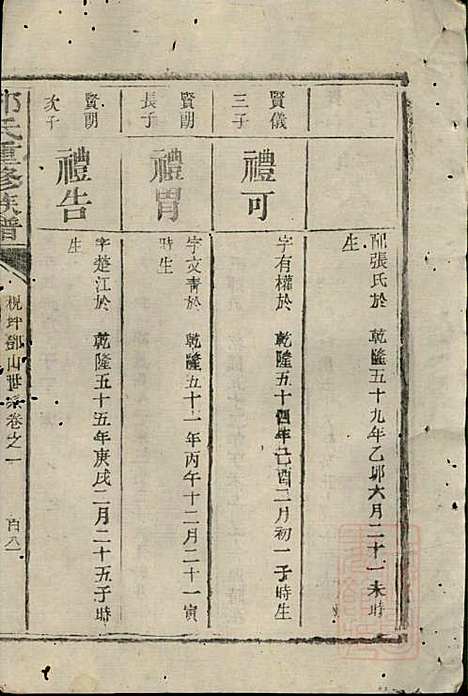 配張氏於　乾隆五十九年乙卯六月二十一未時
生
賢儀
三子
禮可
字有權於　乾隆五十四年己酉二月初一子時生
賢朗
長子
禮胃
字文青於　乾隆五十一年丙午十二月二十一寅
時生
賢朗
次子
禮告
字楚江於　乾隆五十五年庚戌二月二十五子時
生
氏重修族譜
梘坪鄧山世系卷之一